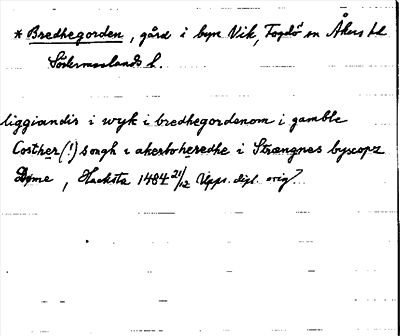 * Bredhegorden, gård i byn Vik, Fogdö sn Åkers hd
Södermanlands l.
liggiandis i wyk i bredhegordenom i gamble
Costher (!) soogh i akerboheredhe i Strængnes byscopz
Döme, Hacksta 1484 21/12 Upps. dipl. orig?